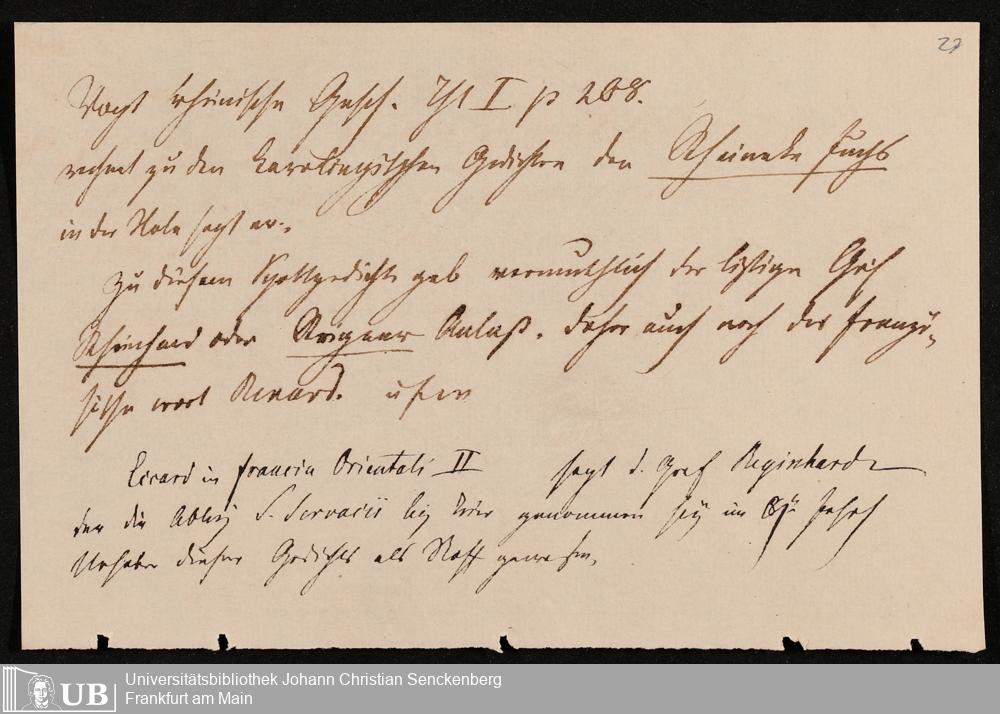 27
Vogt Rheinische Gesch. Thl I p 208.
rechnet zu den karolingischen Gedichten den Rheineke Fuchs
in der Note sagt er.
Zu diesem Spottgedichte gab vermuthlich der listige Graf
Rheinhard oder Anlaß. daher auch noch das franzö-
sische wort Renard. usw
Eccard in Francia Orientali II sagt d. Graf Reginhard
der die Abtey S. Servatii bey Trier genommen sey im Jahrh
Urheber dieses Gedichts als Stoff gewesen.
UB
Universitätsbibliothek Johann Christian Senckenberg
Frankfurt am Main